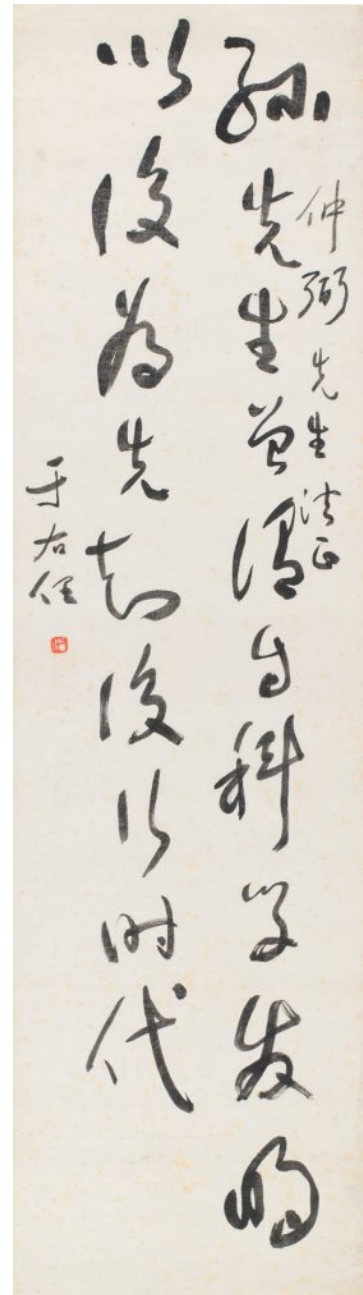 仲弼先生法正
孫先生曾謂自科學發明
以後為先知後行時代
于右任